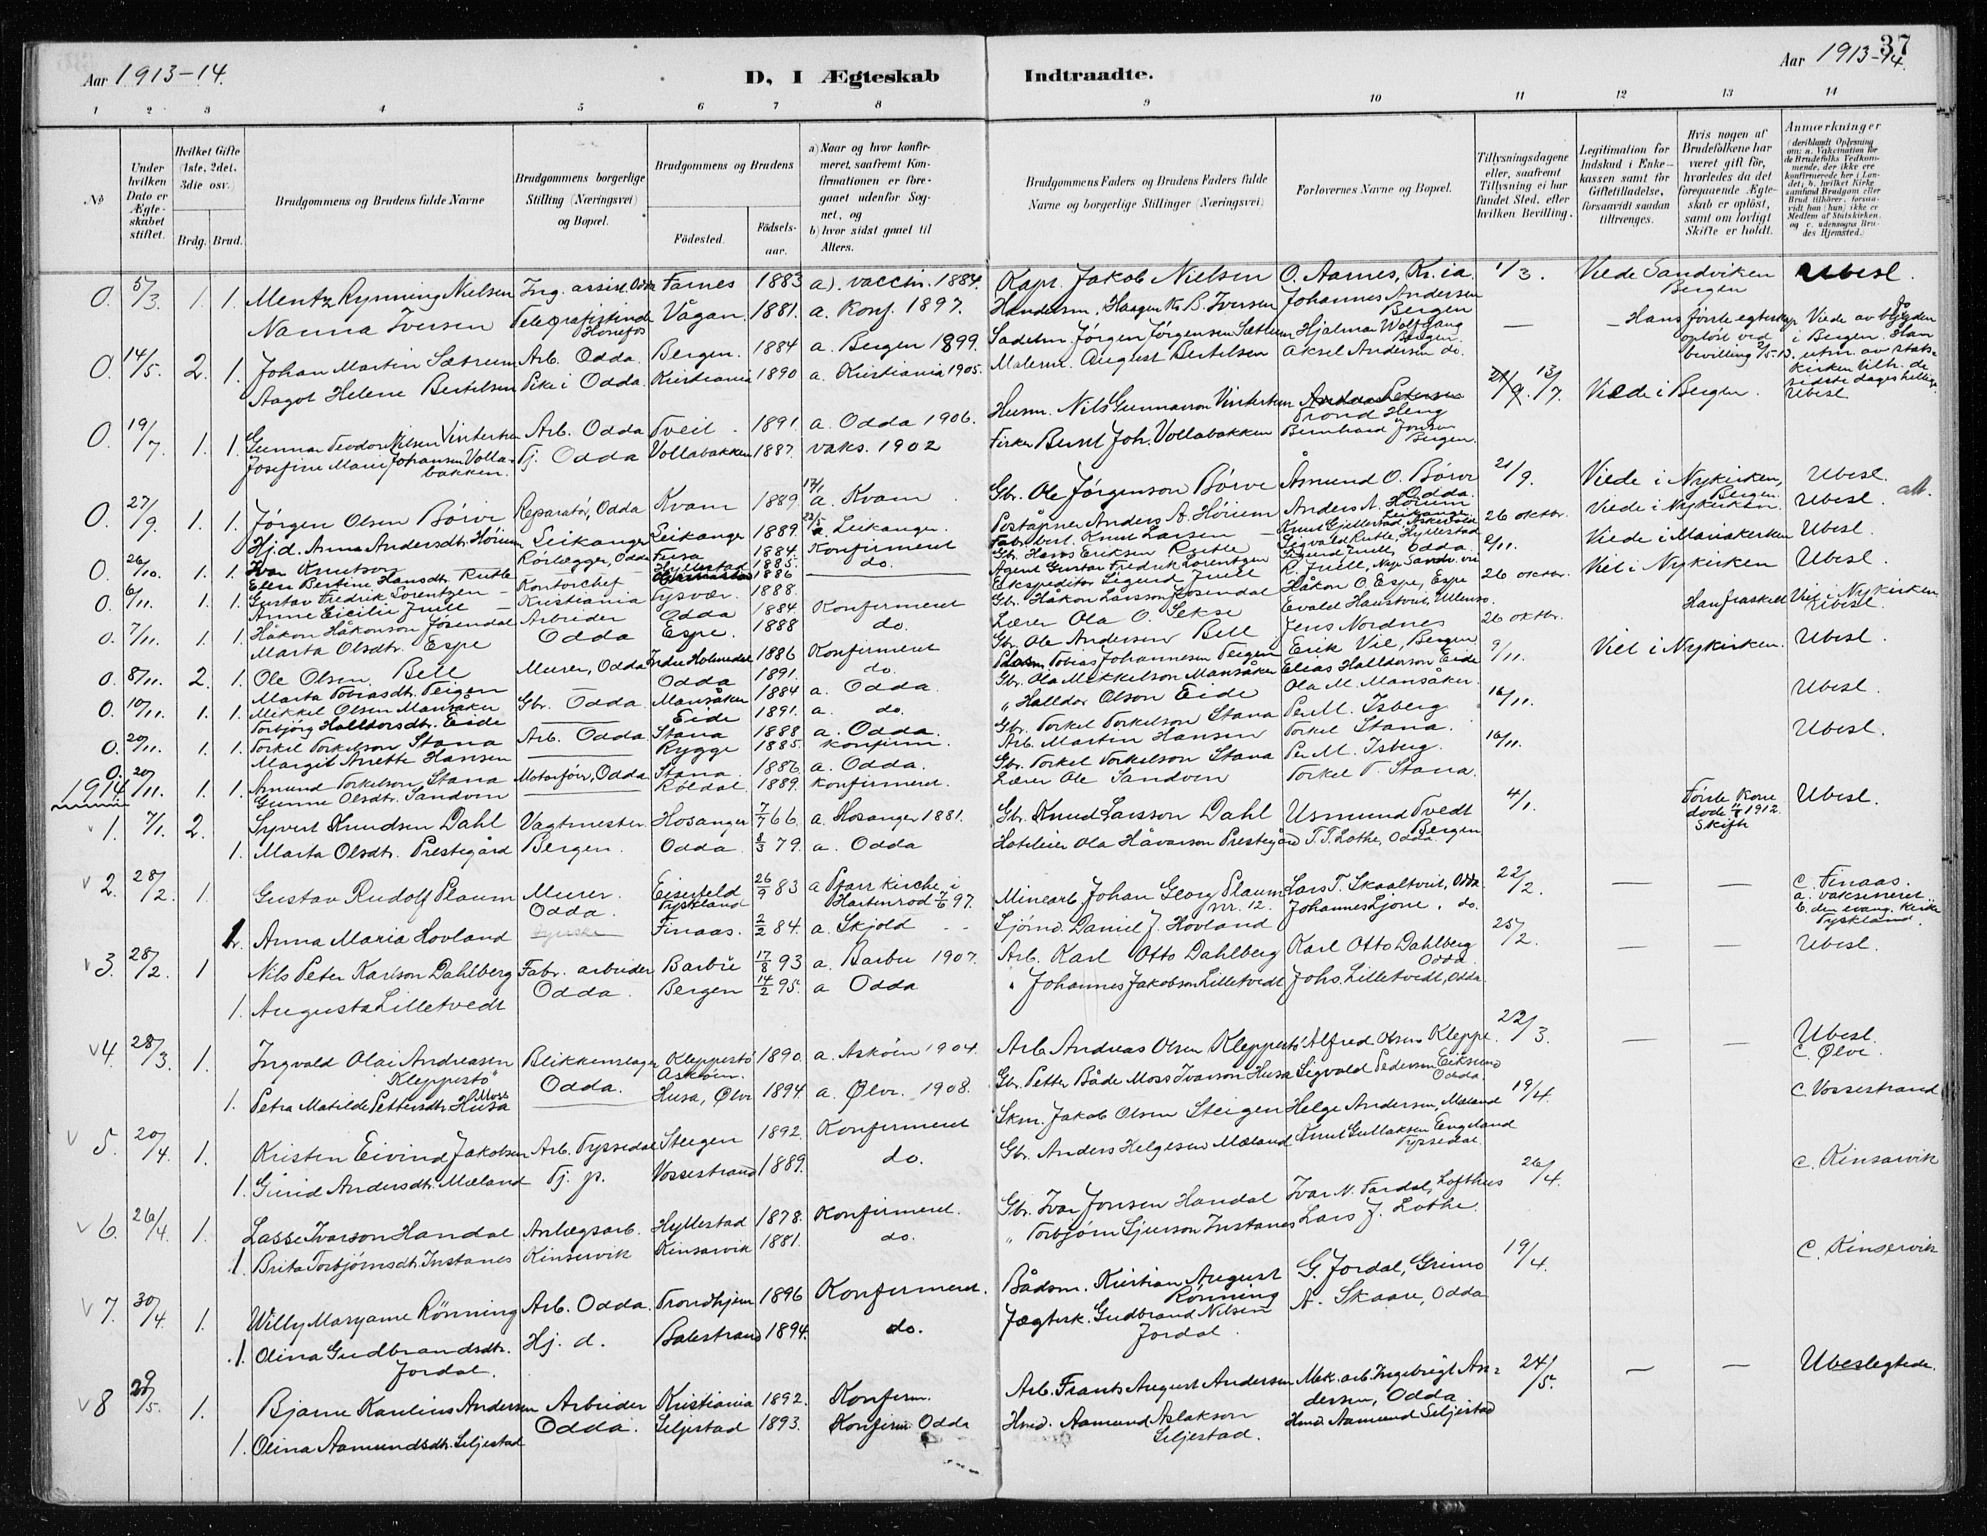 37
Aar 1913-14.
D, I Ægteskab Indtraadte.
Aar 1913-14.
1 2 3 4 5 6 7 8 9 10 11 12 13 14
No
Under hvilken Dato er Ægteskabet stiftet.
Hvilket Gifte (1ste, 2det, 3die osv.)
Brdg. Brud.
Brudgommens og Brudens fulde Navne
Brudgommens borgerlige Stilling (Næringsvei) og Bopæl.
Brudgommens og Brudens
Fødested.
Fødselsaar.
a) Naar og hvor konfirmeret, saafremt Konfirmationen er foregaaet udenfor Sognet, og
b) hvor sidst gaaet til Alters.
Brudgommens Faders og Brudens Faders fulde Navne og borgerlige Stillinger (Næringsvei)
Forlovernes Navne og Bopæl.
Tillysningsdagene eller, saafremt Tillysning ei har fundet Sted, efter hvilken Bevilling.
Legitimation for Indskud i Enkekassen samt for Giftetilladelse, forsaavidt saadan tiltrænges.
Hvis nogen af Brudefolkene har været gift før, hvorledes da det foregaaende Ægteskab er opløst, samt om lovligt Skifte er holdt.
Anmærkninger (deriblandt Oplysning om: a. Vakcination for de Brudefolks Vedkommende, der ikke ere konfirmerede her i Landet; b. hvilket Kirkesamfund Brudgom eller Brud tilhører, forsaavidt han (hun) ikke er Medlem af Statskirken, og c. udensogns Brudes Hjemsted.)
0. 5/3 1. 1. Mentz Rynning Nielsen Ing. assist. Odda Farnes 1883 a). vaccin. 1884. Kapt. Jakob Nielsen O. Aarnes, Kr.ia 1/3. Viede Sandviken Bergen Ubesl.
Nanna Iversen Telegrafistinde Hønefos Vågan 1881. a. Konf. 1897. Handelsm. Haagen Kr. B. Iversen Johannes Andersen Bergen
0. 14/5 2. 1. Johan Martin Sætrum Arb. Odda. Bergen. 1884 a. Bergen 1899. Sadelm. Jørgen Jørgensen Sætrum Hjalmar Wolfgang Bergen — — Hans første egteskap opløst ved bevilling 2/5-13. Viede av byfogden i Bergen. Han utm. av statskirken tilh. de sidste dages hellige Ubesl.
Aagot Helene Bertelsen Pike i Odda. Kristiania 1890 a. Kristiania 1905. Malerm. August Bertelsen Aksel Andersen do.
0 19/7 1. 1. Gunnar Teodor Nilsen Vintertun Arb. Odda Tveit. 1891 a. Odda 1906. Husm. Nils Gunnarson Vintertun Trond Heng 13/7 Viede i Bergen.
Josefine Marie Johansen Vollabakken. Tj. Odda Vollabakken 1887. vaks. 1902 Fisker Bernt Joh. Vollabakken Bernhard Jonson Bergen.
0. 27/9 1. 1. Jørgen Olsen Børve Reparatør, Odda Kvam 1889 a. Kvam Gbr. Ole Jørgenson Børve Åsmund O. Børve Odda. 21/9. Viede i Nykirken, Bergen. Ubesl.
Hj.d. Anna Andersdtr. Hørium Leikanger Leikanger 1889. a. Leikanger. Poståpner Anders A. Hørium Anders A. Hørium Leikanger. Ubesl. att.
0. 26/10. 1. 1. Ivar Knutson Rørlægger, Odda Fusa 1884. Konfirmeret Fabr.best. Knut Larsen Knut Gjellestad, Askevold 26 oktbr. Viede i Nykirken.
Elen Bertine Hansdtr. Rutle Hyllestad 1885. do. Gbr. Hans Eriksen Rutle Sigvald Rutle, Hyllestad
0. 6/11. 1. 1. Gustav Fredrik Lorentzen Kontorchef 1886 Agent Gustav Fredrik Lorentzen Sigurd Juell, Odda 2/11. Viede i Mariakerken Ubesl.
Anne Eicilie Juell Kristiania Tysvær. 1888. Ekspeditør Sigurd Juell R. Juell, Nye Sandv. vei
0. 7/11. 1. 1. Håkon Håkonson Jøsendal Arbeider Odda 1884. Konfirmeret Gbr. Håkon Larsson Jøsendal Håkon O. Espe, Espe 26 oktbr. Viet i Nykirken Ubesl.
Marta Olsdtr. Espe Odda Espe. 1888 do. Lærer Ola O. Sekse Evald Haustveit, Ullensv.
0. 8/11. 2. 1. Ole Olsen Bell Murer, Odda Indre Holmedal 1886 Konfirmeret Gbr. Ole Andersen Bell Jens Nordnes 26 oktbr. Han fraskilt Viet i Nykirken Ubesl.
Marta Tobiasdtr. Teigen Odda 1891. do. Tobias Johannesen Teigen Erik Vie, Bergen
0. 10/11. 1. 1. Mikkel Olsen Mansåker Gbr. Odda Mansåker 1884 a. Odda. Gbr. Ola Mikkelson Mansåker Elias Halldorson Eide 9/11. Viet i Nykirken. Ubesl.
Torbjørg Halldorsdtr. Eide — Eide 1891. a. do. „ Halldor Olson Eide Ola M. Mansåker.
0. 20/11. 1. 1. Torkel Torkelson Stana Arb. Odda. Stana 1888 a. Odda. Gbr. Torkel Torkelson Stana Per M. Isberg 16/11. Ubesl.
Margit Anette Hansen — Rygge 1885. konfirm. Arb. Martin Hansen Torkel Stana.
0. 20/11. 1. 1. Åmund Torkelson Stana Motorfører, Odda Stana. 1886 a. Odda. Gbr. Torkel Torkelson Stana Per M. Isberg. 16/11. Ubesl.
1914 Gunne Olsdtr. Sandven — Røldal. 1889. konfirmeret. Lærer Ole Sandven Torkel T. Stana.
v 1. 7/1. 2. Syvert Knudsen Dahl Vagtmester Hosanger 7/7 66. a. Hosanger 1881. Gbr. Knud Larsson Dahl Usmund Tvedt Bergen 4/1. Første Kone døde 1912. Skifte Ubesl.
1. Marta Olsdtr. Prestegård Bergen. Odda. 8/3 79. a. Odda Hotelier Ola Håvarson Prestegård T. T. Lothe, Odda.
v 2. 28/2. 1. Gustav Rudolf Plaum Murer Odda. Eiserfeld Tyskland 26/9 83 a Pfarrkirche i Hartenrod 7/6 97. Minearb. Johan Georg Plaum nr. 12. Lars T. Skaaltveit, Odda. 22/2. — — C. Finaas. a. vaksineret. b. den evang. Kirke Tyskland.
1. Anna Maria Hovland Finaas. 2/2 84. a. Skjold Sjømd. Daniel J. Hovland Johannes Ljone, do.
v 3. 28/2. 1 Nils Peter Karlson Dahlberg Fabr. arbeider Barbu 17/8 93 a. Barbu 1907. Arb. Karl Otto Dahlberg Karl Otto Dahlberg Odda. 25/2. — — Ubesl.
1. Augusta Lilletvedt Odda. Bergen 14/2 95. a Odda „ Johannes Jakobson Lilletvedt Johs. Lilletvedt, Odda.
v 4. 28/3. 1. Ingvald Olai Andreasen Kleppestø Blikkenslager Kleppestø Askøen. 1890. a. Askøen 1904. Arb. Andreas Olsen Kleppestø Alfred Olsen Kleppe 22/3. — — Ubesl. C. Ølve.
1. Petra Matilde Pettersdtr. Moss Husa Odda. Husa, Ølve 1894. a. Ølve. 1908. Gbr. Petter Både Moss Ivarson Husa Sigvald Pedersen Eiksund Odda.
v 5. 20/4. 1. Kristen Eivind Jakobsen Arb. Tyssedal Steigen 1892. Konfirmeret Skm. Jakob Olsen Steigen Helge Andersen, Mæland 19/4. C. Vossestrand
1. Gurid Andersdtr. Mæland Tj. p. Vossestrand 1889. do. Gbr. Anders Helgesen Mæland Knut Gullaksen Engeland Tyssedal.
v 6. 26/4. 1. Lasse Ivarson Handal Anlægsarb. Hyllestad 1878. Konfirmeret. Gbr. Ivar Jonsen Handal Ivar N. Tardal, Lofthus 26/4. C. Kinsarvik
1. Brita Torbjørnsdtr. Instanes Kinservik Kinsarvik 1881. do. „ Torbjørn Sjurson Instanes Lars J. Lothe.
v 7. 30/4. 1. Willy Maryame Rönning Arb. Odda. Trondhjem 1896 Konfirmeret. Bådsm. Kristian August Rönning G. Jordal, Grimo 19/4. C. Kinservik
1. Olina Gudbrandsdtr. Jordal. Hj. d. Balestrand 1894. do. Jægtesk. Gudbrand Nilsen Jordal. A. Skaare, Odda
v 8 29/5. 1. Bjarne Kaulius Andersen Arbeider Kristiania 1892. Konfirm. Arb. Frants August Andersen Mek. arb. Ingebrigt Andersen, Odda 24/5. — — Ubeslegtede.
1. Olina Aamundsdtr. Seljestad Odda. Seljestad 1893. Konfirm Odda Hmd. Aamund Aslakson Seljestad. Hmd. Aamund Seljestad